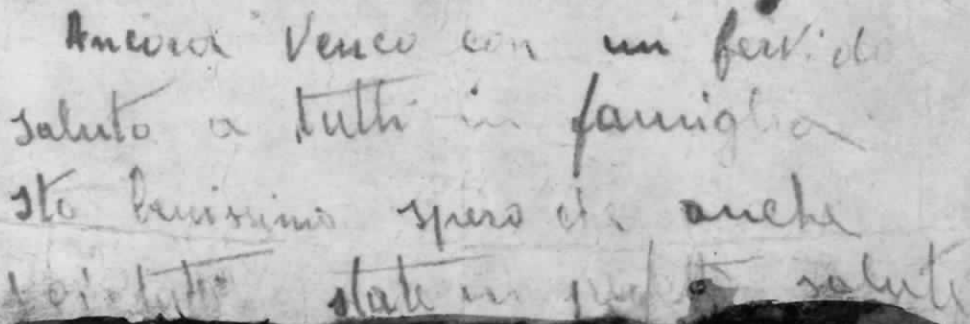 Ancora Vengo con un fervido
saluto a tutti in famiglia
sto benissimo spero che anche
voi tutti state in perfetta salute